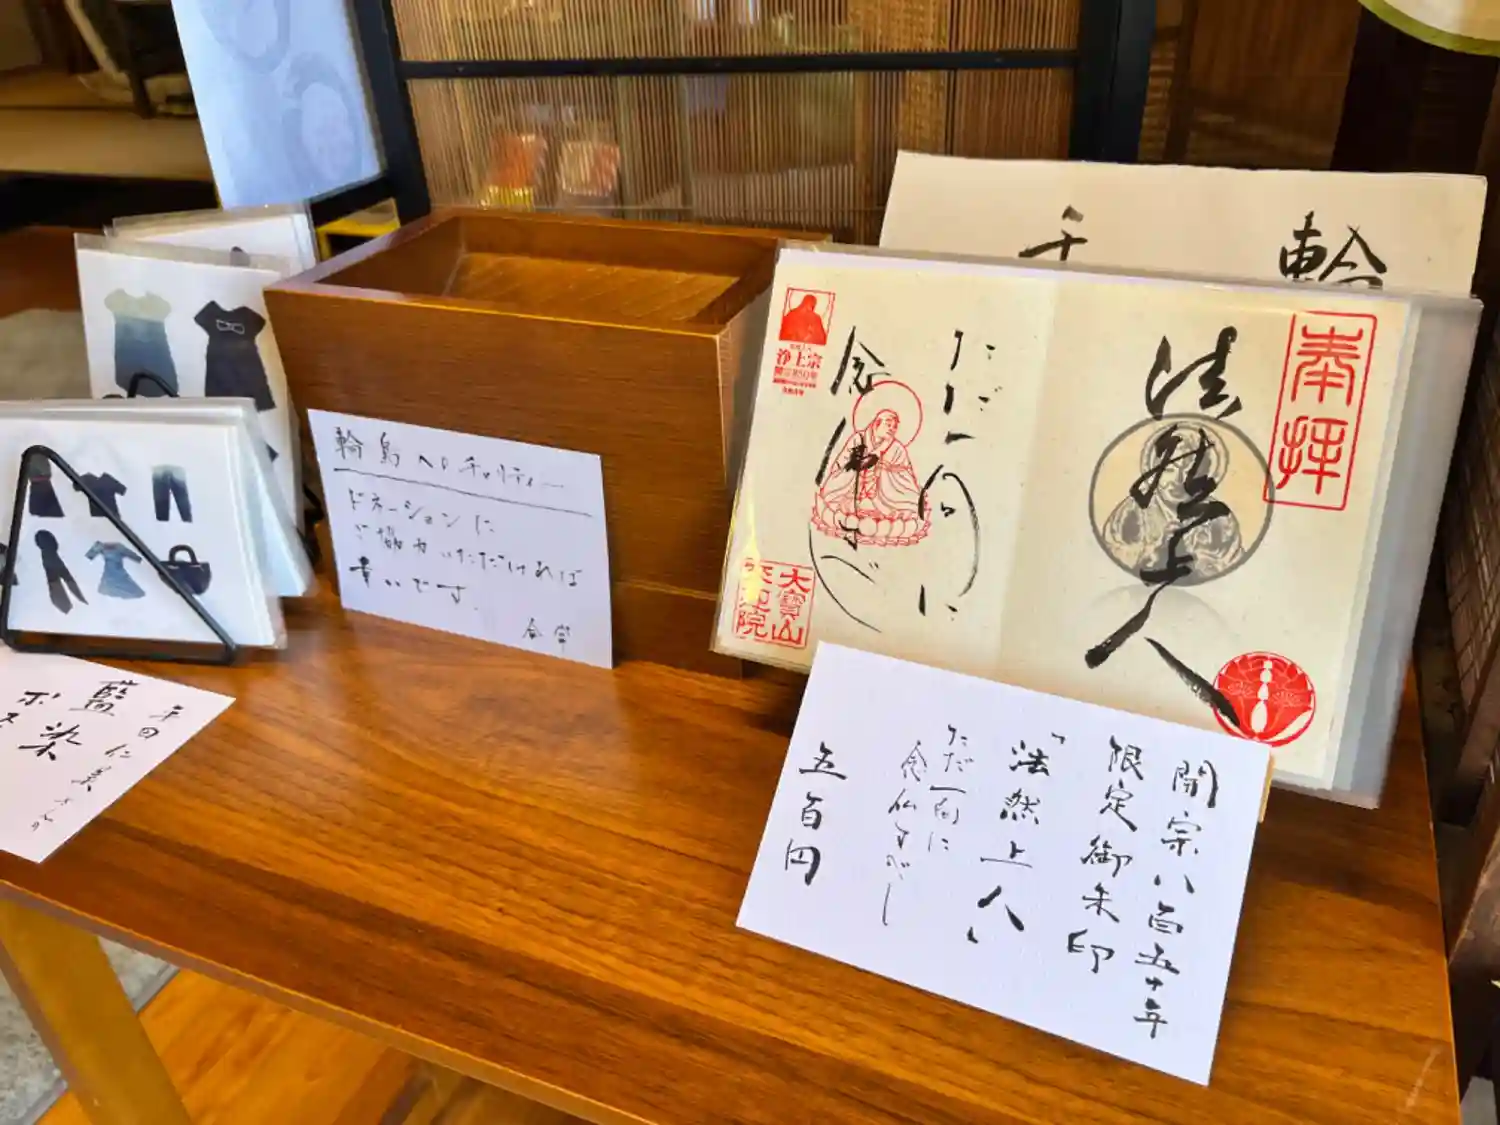 輪島へのチャリティー
ドネーションに
ご協力いただければ
幸いです。
合掌
平田仁美さんの
藍染
ポス
輪
千
奉拝
法然上人
ただ一向に
念仏すべし
浄土宗
開宗850年
大寳山
開宗八百五十年
限定御朱印
「法然上人」
ただ一向に
念仏すべし
五百円